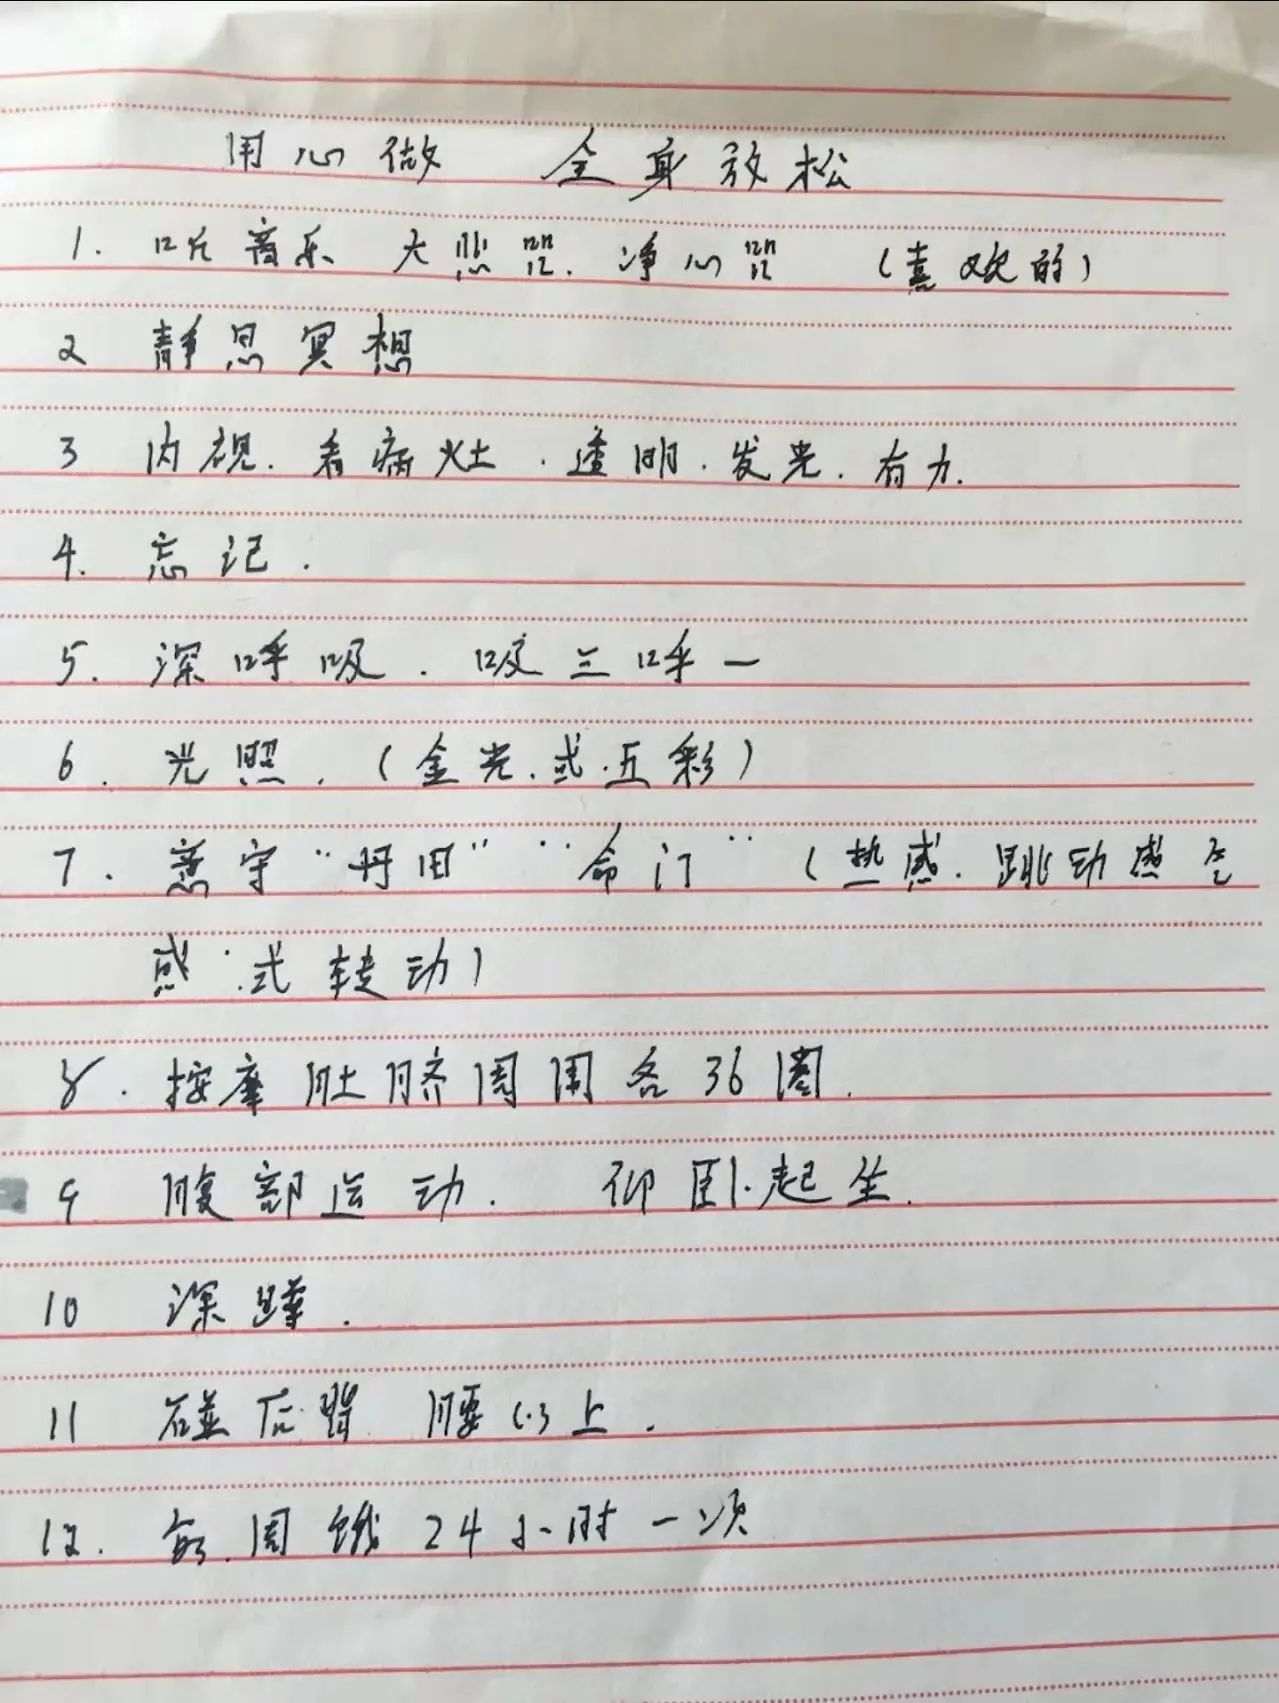 用心做 全身放松
1. 听音乐 大悲咒. 净心咒 (喜欢的)
2 静思冥想
3 内视. 看病灶. 透明. 发光. 有力.
4. 忘记.
5. 深呼吸. 吸三呼一
6. 光照. (金光.或.五彩)
7. 意守“丹田”“命门”(热感. 跳动感
感 式转动)
8. 按摩肚脐周围各36圈.
9 腹部运动. 仰卧起坐.
10 深蹲.
11 碰后背 腰以上.
12. 每周饿24小时一次